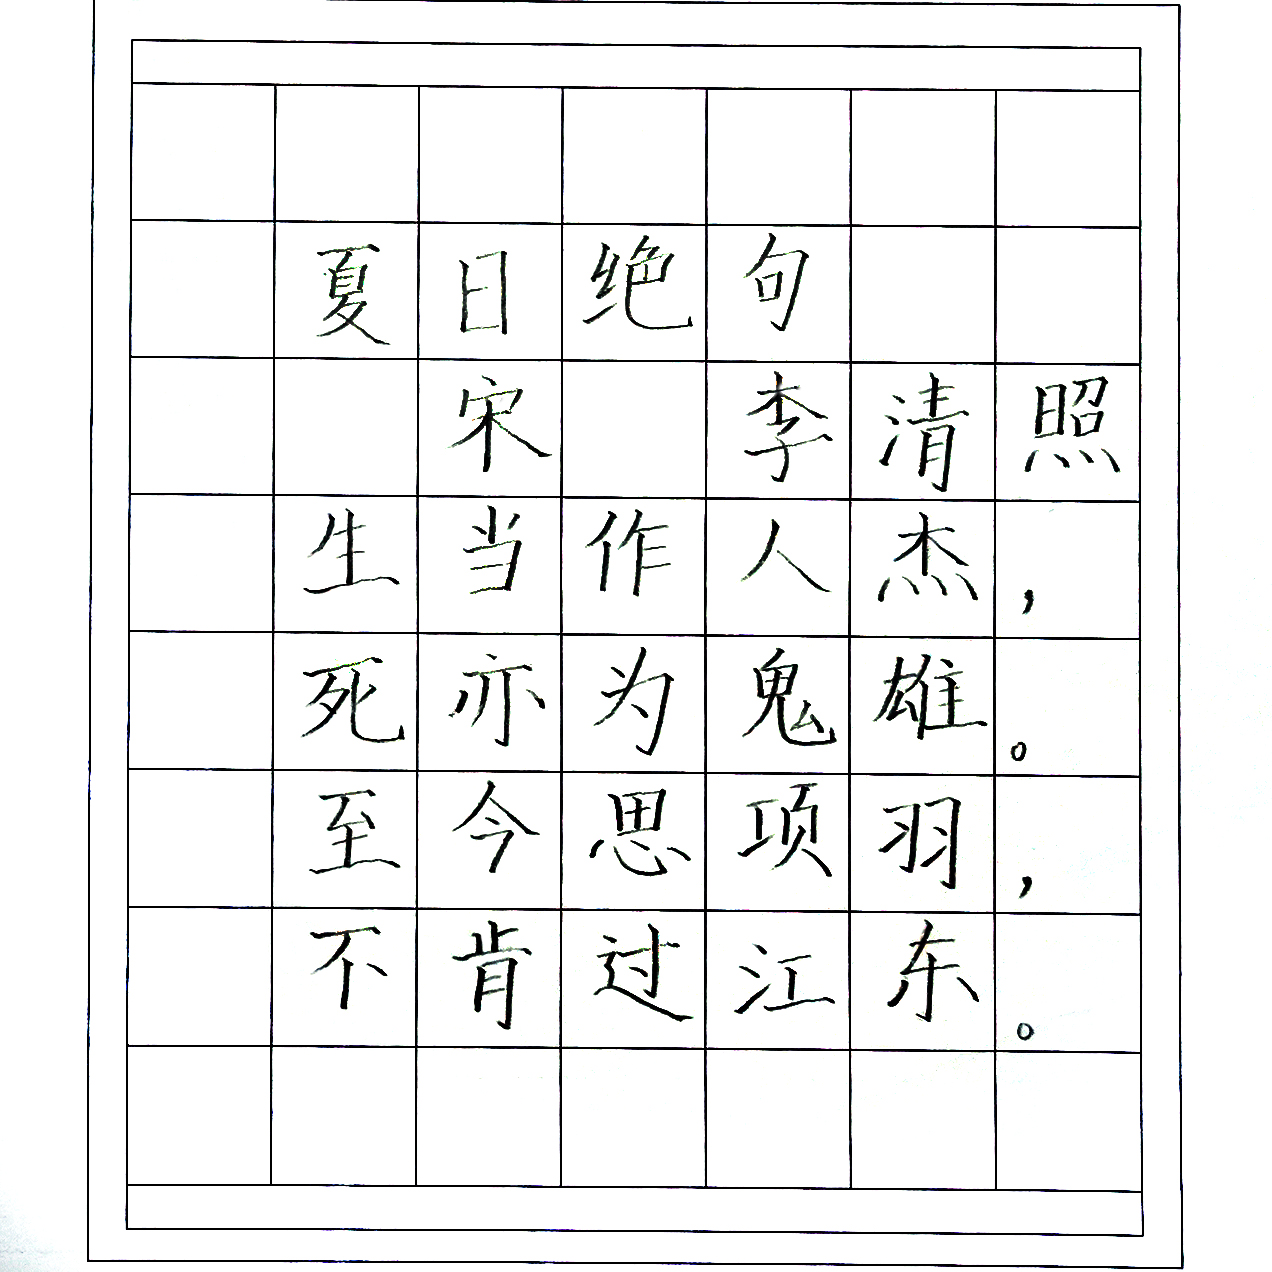 夏日绝句
宋 李清照
生当作人杰，
死亦为鬼雄。
至今思项羽，
不肯过江东。